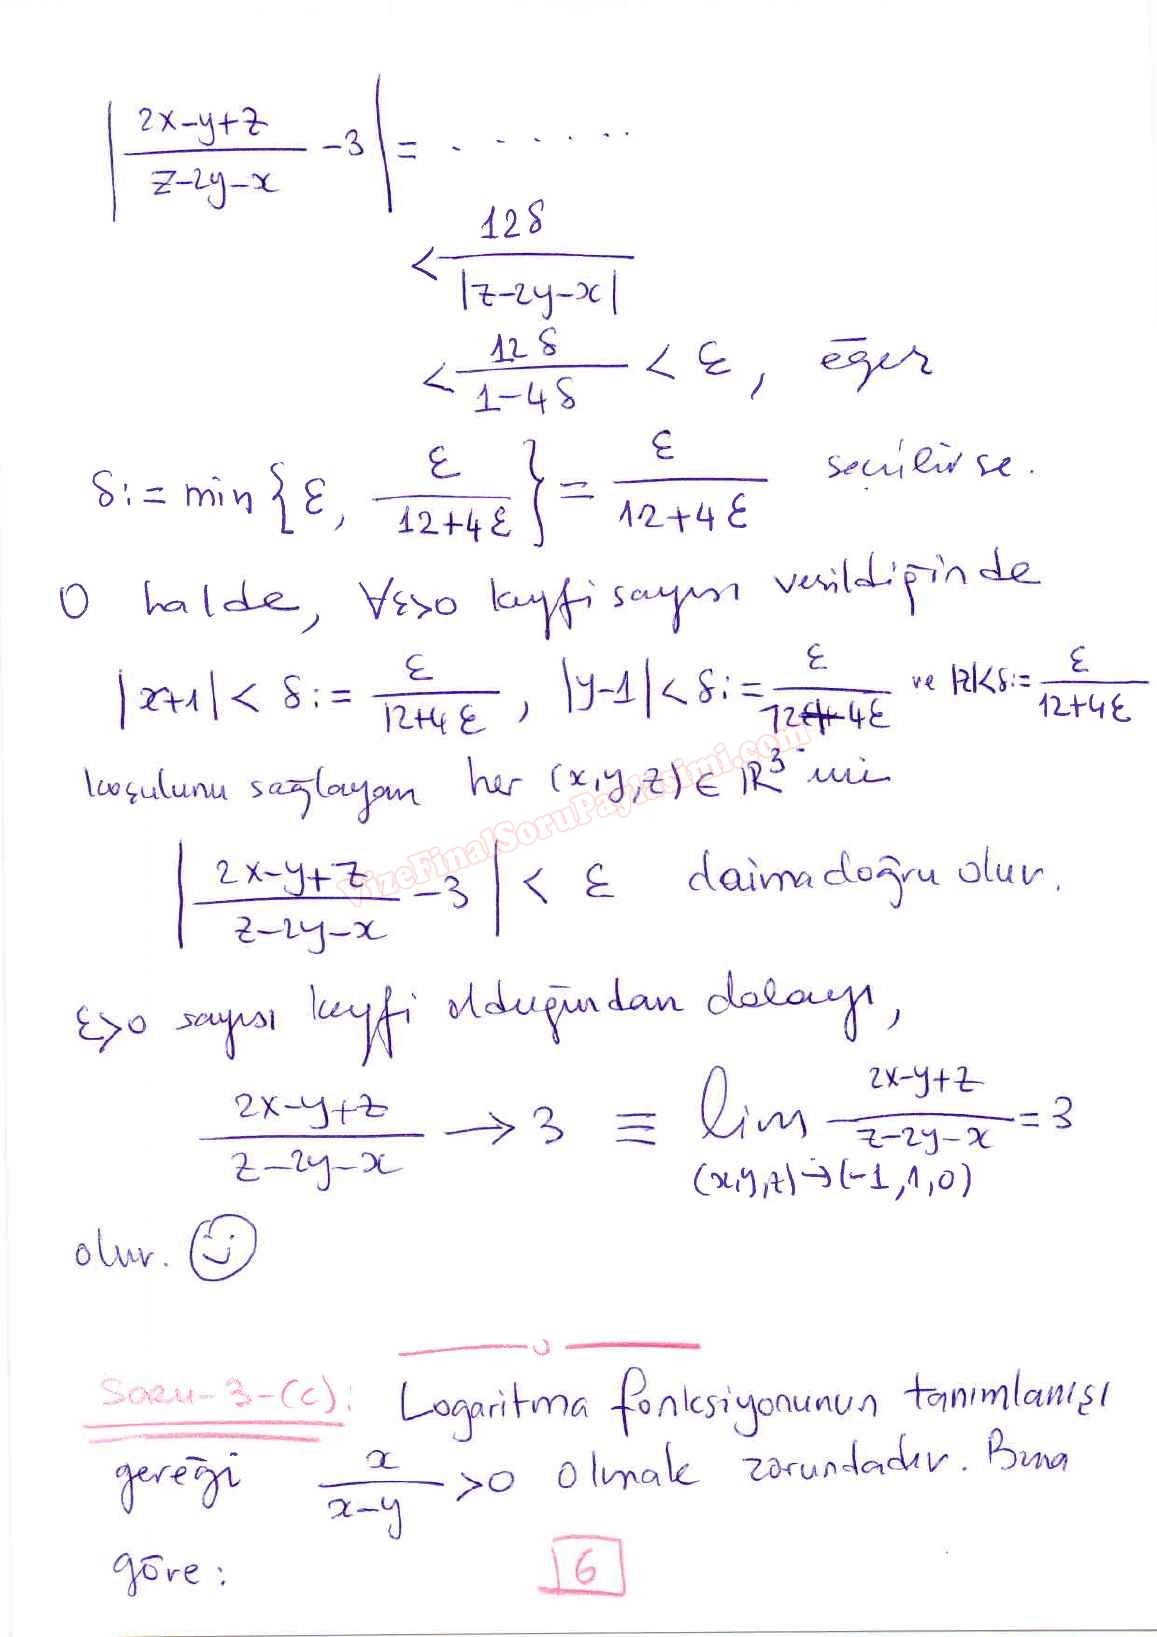 |2x-y+z / z-2y-x - 3| = . . . . . . .
< 12δ / |z-2y-x|
< 12δ / 1-4δ < ε, eğer
δ := min{ε, ε / 12+4ε} = ε / 12+4ε seçilirse.
O halde, ∀ε>0 keyfi sayısı verildiğinde
|x+1| < δ := ε / 12+4ε , |y-1| < δ := ε / 12+4ε ve |z|<δ:= ε / 12+4ε
koşulunu sağlayan her (x,y,z) ∈ ℝ³ için
|2x-y+z / z-2y-x - 3| < ε daima doğru olur.
VizeFinalSoruPaylasimi.com
ε>0 sayısı keyfi olduğundan dolayı,
2x-y+z / z-2y-x → 3 ≡ lim 2x-y+z / z-2y-x = 3
(x,y,z)→(-1,1,0)
olur.
Soru-3-(c): Logaritma fonksiyonunun tanımlanışı
gereği x / x-y >0 olmak zorundadır. Buna
göre:
6